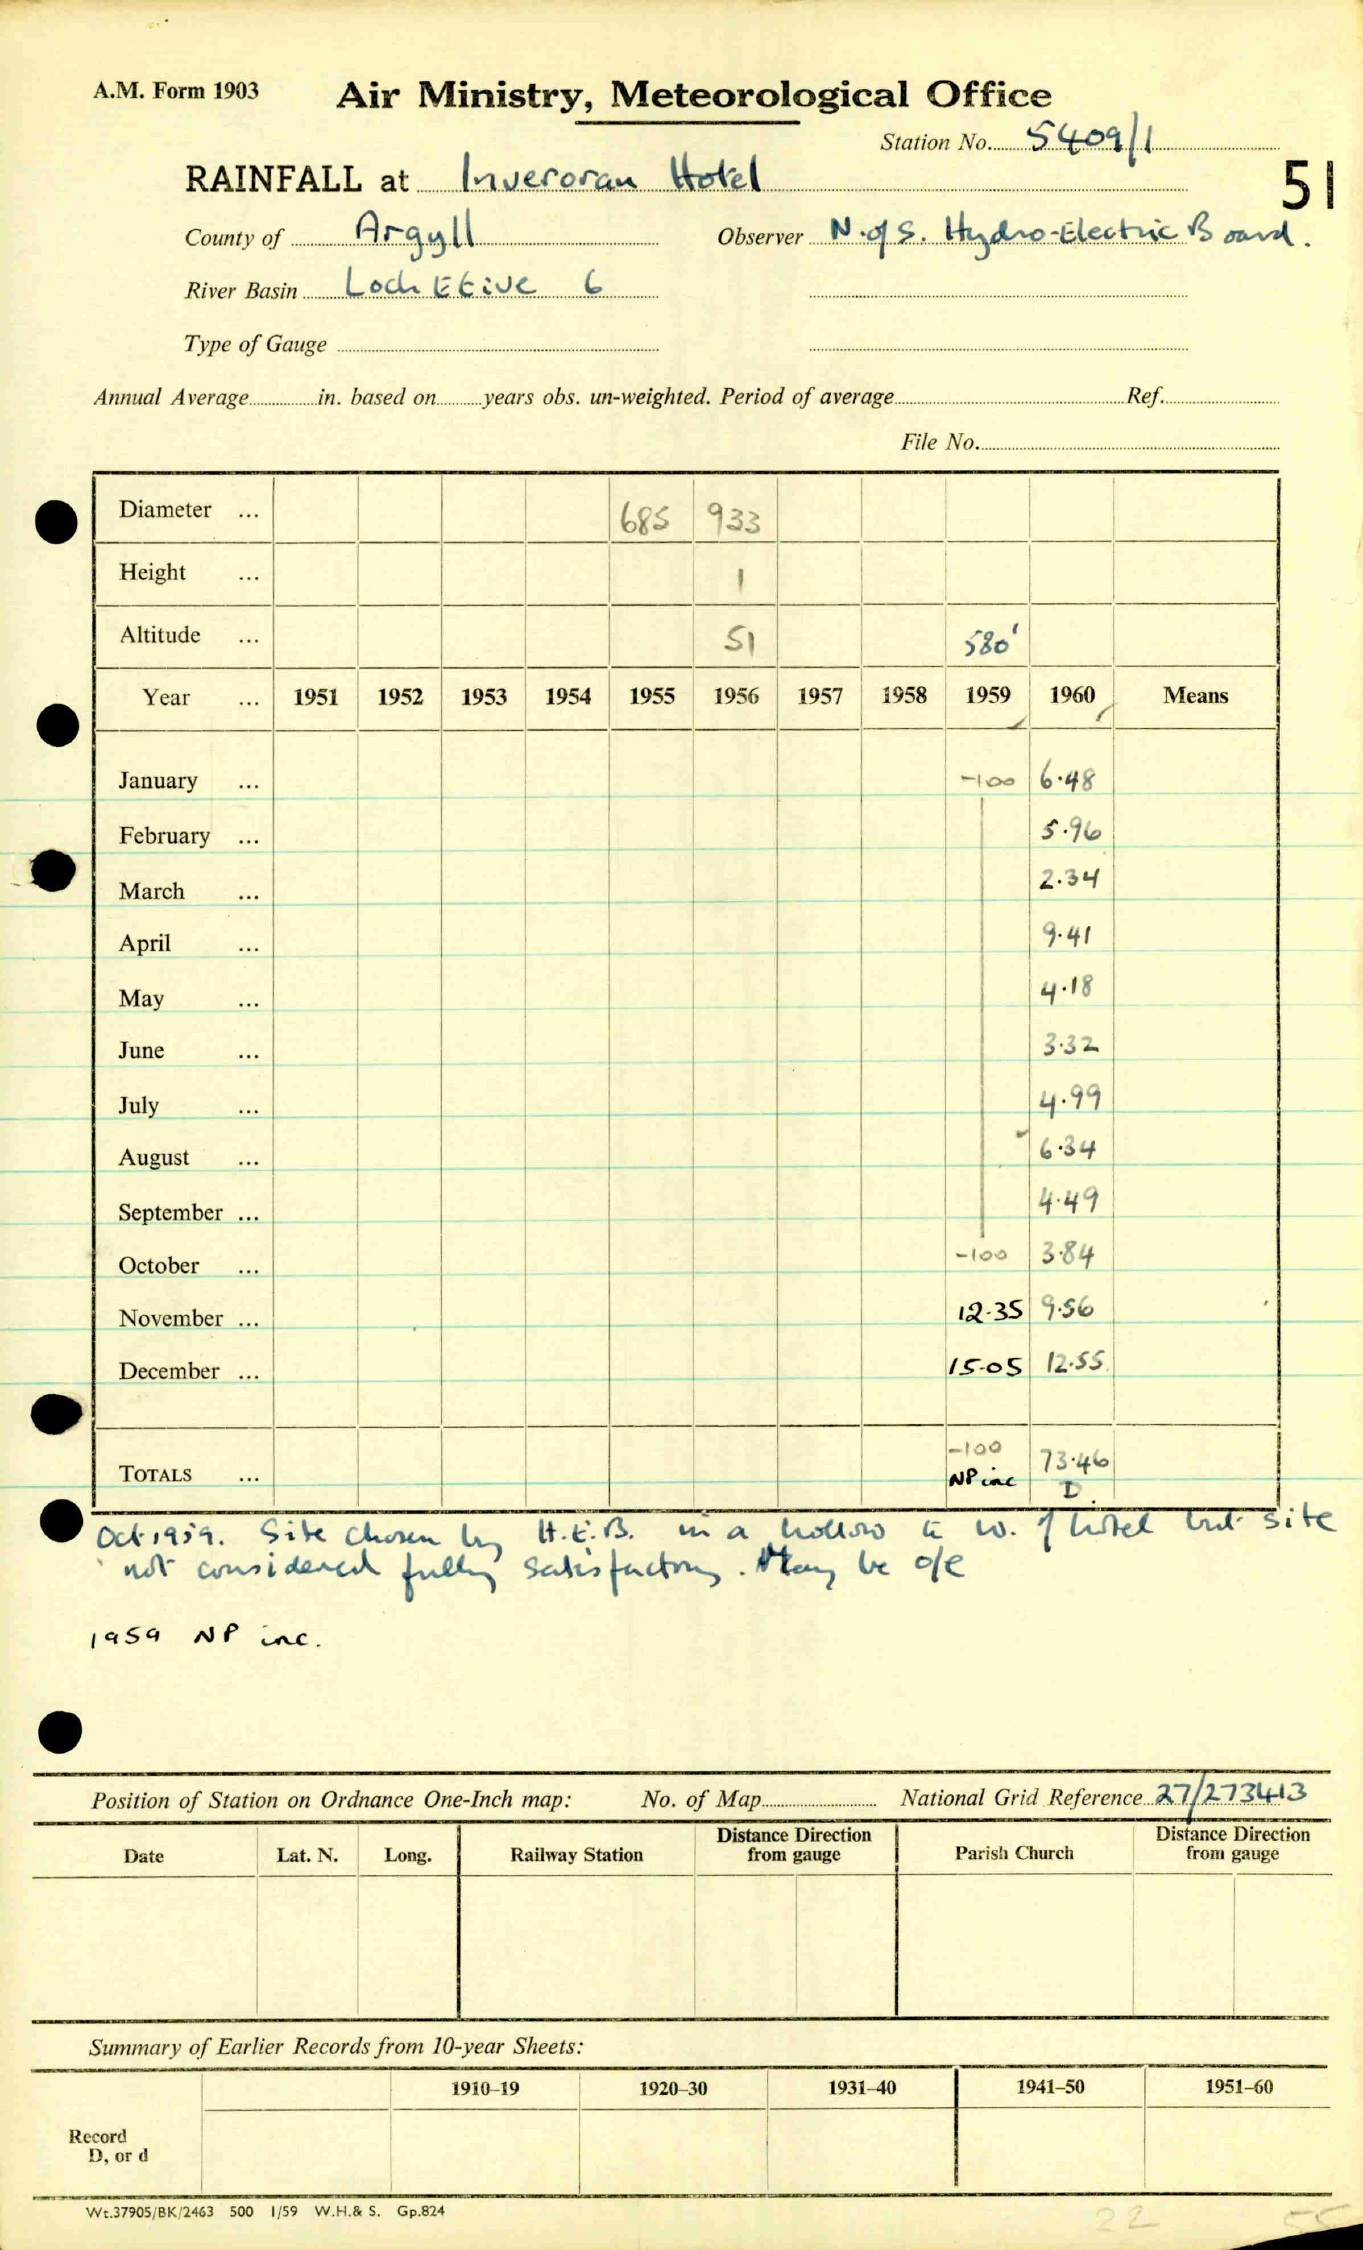 A.M. Form 1903 Air Ministry, Meteorological Office
Station No. 5409/1
RAINFALL at Inveroran Hotel 51
County of Argyll Observer N. of S. Hydro-Electric Board.
River Basin Loch Etive 6
Type of Gauge
Annual Average in. based on years obs. un-weighted. Period of average Ref.
File No.
Diameter ... 685 933
Height ... 1
Altitude ... 51 580'
Year ... 1951 1952 1953 1954 1955 1956 1957 1958 1959 1960 Means
January ... -100 6.48
February ... 5.96
March ... 2.34
April ... 9.41
May ... 4.18
June ... 3.32
July ... 4.99
August ... 6.34
September ... 4.49
October ... -100 3.84
November ... 12.35 9.56
December ... 15.05 12.55
-100
TOTALS ... NP inc 73.46
D.
Oct 1959. Site chosen by H.E.B. in a hollow to W. of hotel but site
not considered fully satisfactory. May be o/e
1959 NP inc.
Position of Station on Ordnance One-Inch map: No. of Map National Grid Reference 27/273413
Date Lat. N. Long. Railway Station Distance Direction from gauge Parish Church Distance Direction from gauge
Summary of Earlier Records from 10-year Sheets:
1910–19 1920–30 1931–40 1941–50 1951–60
Record
D, or d
Wt.37905/BK/2463 500 1/59 W.H.& S. Gp.824
22 55